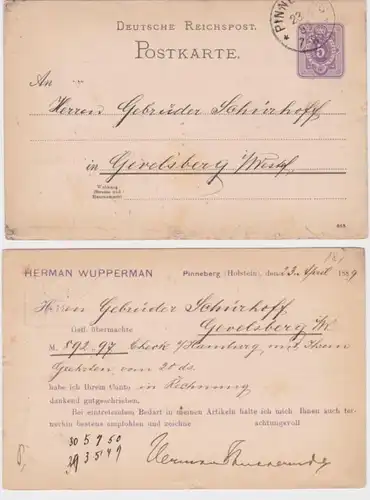 DEUTSCHE REICHSPOST.
POSTKARTE.
PINNE
23
7-8N
5
An
Herren Gebrüder Schürhoff
in Gevelsberg i/Westf
Wohnung
(Strasse und
Hausnummer)
HERMAN WUPPERMAN Pinneberg (Holstein), den 23. April 1889
Herren Gebrüder Schürhoff,
Gevelsberg i/W.
Gefl. übermachte
M. 892.97 Check s/Hamburg mit Ihrem
Geehrten vom 20 ds.
habe ich Ihrem Conto in Rechnung
dankend gutgeschrieben.
Bei eintretendem Bedarf in meinen Artikeln halte ich mich Ihnen auch fer-
nerhin bestens empfohlen und zeichne achtungsvoll
Herman Wupperman